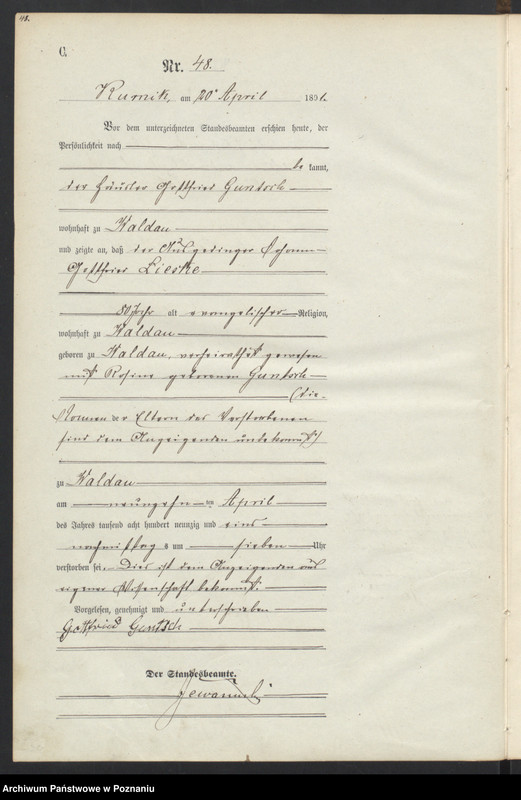 48.
C.
Nr. 48.
Kurnik, am 20ⁿ April 1891.
Vor dem unterzeichneten Standesbeamten erschien heute, der
Persönlichkeit nach
be kannt,
der Häusler Gottfried Guntsch
wohnhaft zu Waldau
und zeigte an, daß der Ausgedinger Johann
Gottfried Lieske
80 Jahr alt evangelischer Religion,
wohnhaft zu Waldau
geboren zu Waldau, verheirathet gewesen
mit Rosine geborenen Guntsch
(die
Namen der Eltern des Verstorbenen
sind dem Anzeigenden unbekannt)
zu Waldau
am neunzehnten April
des Jahres tausend acht hundert neunzig und eins
nachmittags um sieben Uhr
verstorben sei. Dies ist dem Anzeigenden aus
eigener Wissenschaft bekannt.
Vorgelesen, genehmigt und unterschrieben
Gottfried Guntsch
Der Standesbeamte.
Archiwum Państwowe w Poznaniu